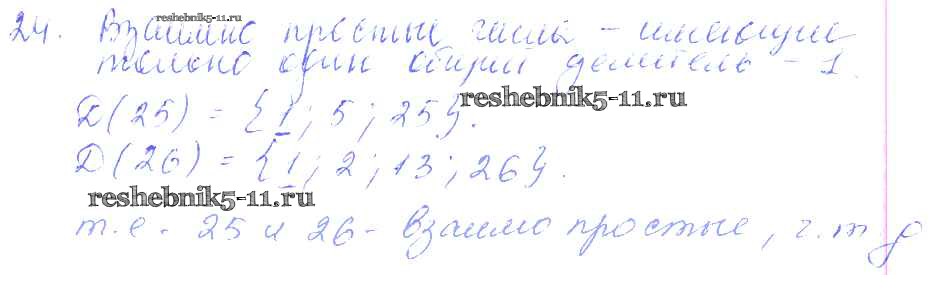 reshebnik5-11.ru
24. Взаимно простые числа - имеющие
только один общий делитель - 1.
reshebnik5-11.ru
D(25) = {1; 5; 25}.
D(26) = {1; 2; 13; 26}.
reshebnik5-11.ru
т.е - 25 и 26 - взаимо простые, ч.т.д